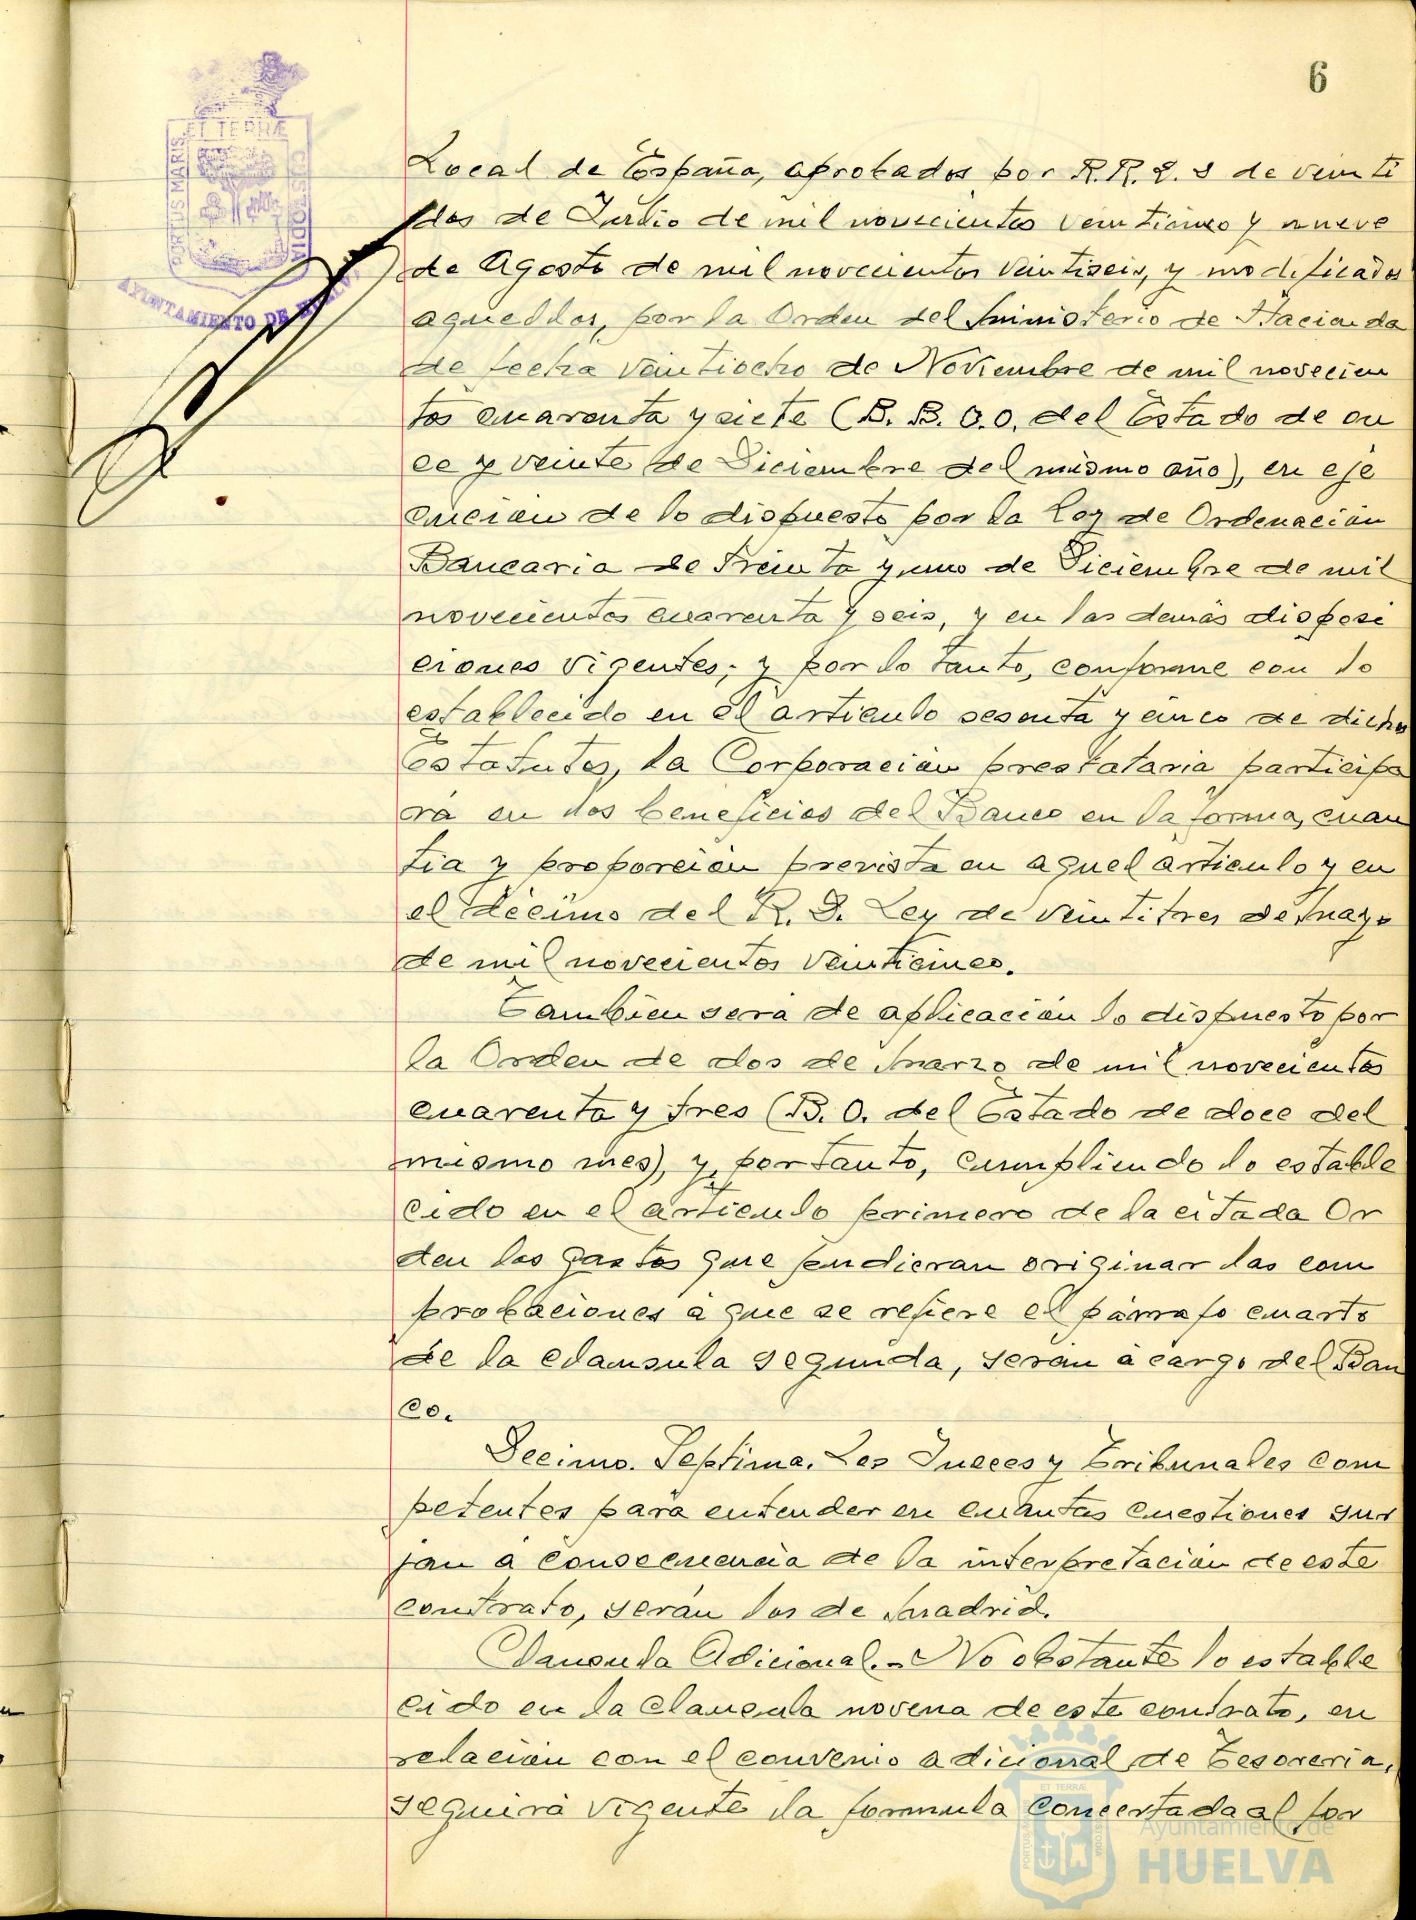 6
ET TERRÆ
PORTUS MARIS
CUSTODIA
AYUNTAMIENTO DE HUELVA
Local de España, aprobados por R.R. D. D de veinti
dos de Julio de mil novecientos veinticinco y nueve
de Agosto de mil novecientos veintiseis, y modificados
aquellos, por la Orden del Ministerio de Hacienda
de fecha veintiocho de Noviembre de mil novecien
tos cuarenta y siete (B. B. O.O. del Estado de on
ce y veinte de Diciembre del mismo año), en eje
cución de lo dispuesto por la Ley de Ordenación
Bancaria de treinta y uno de Diciembre de mil
novecientos cuarenta y seis, y en las demás disposi
ciones vigentes; y por lo tanto, conforme con lo
establecido en el articulo sesenta y cinco de dichos
Estatutos, la Corporación prestataria participa
rá en los beneficios del Banco en la forma, cuan
tia y proporción prevista en aquel articulo y en
el décimo del R. D. Ley de veintitres de Mayo
de mil novecientos veinticinco.
Tambien será de aplicación lo dispuesto por
la Orden de dos de Marzo de mil novecientos
cuarenta y tres (B. O. del Estado de doce del
mismo mes), y, por tanto, cumpliendo lo estable
cido en el articulo primero de la citada Or
den los gastos que pudieran originar las com
probaciones á que se refiere el párrafo cuarto
de la clausula segunda, serán á cargo del Ban
co.
Decimo. Septima. Los Jueces y Tribunales com
petentes para entender en cuantas cuestiones sur
jan á consecuencia de la interpretación de este
contrato, serán los de Madrid.
Clausula Adicional.- No obstante lo estable
cido en la clausula novena de este contrato, en
relación con el convenio adicional de Tesoreria,
seguirá vigente la formula concertada al for
Ayuntamiento de
HUELVA